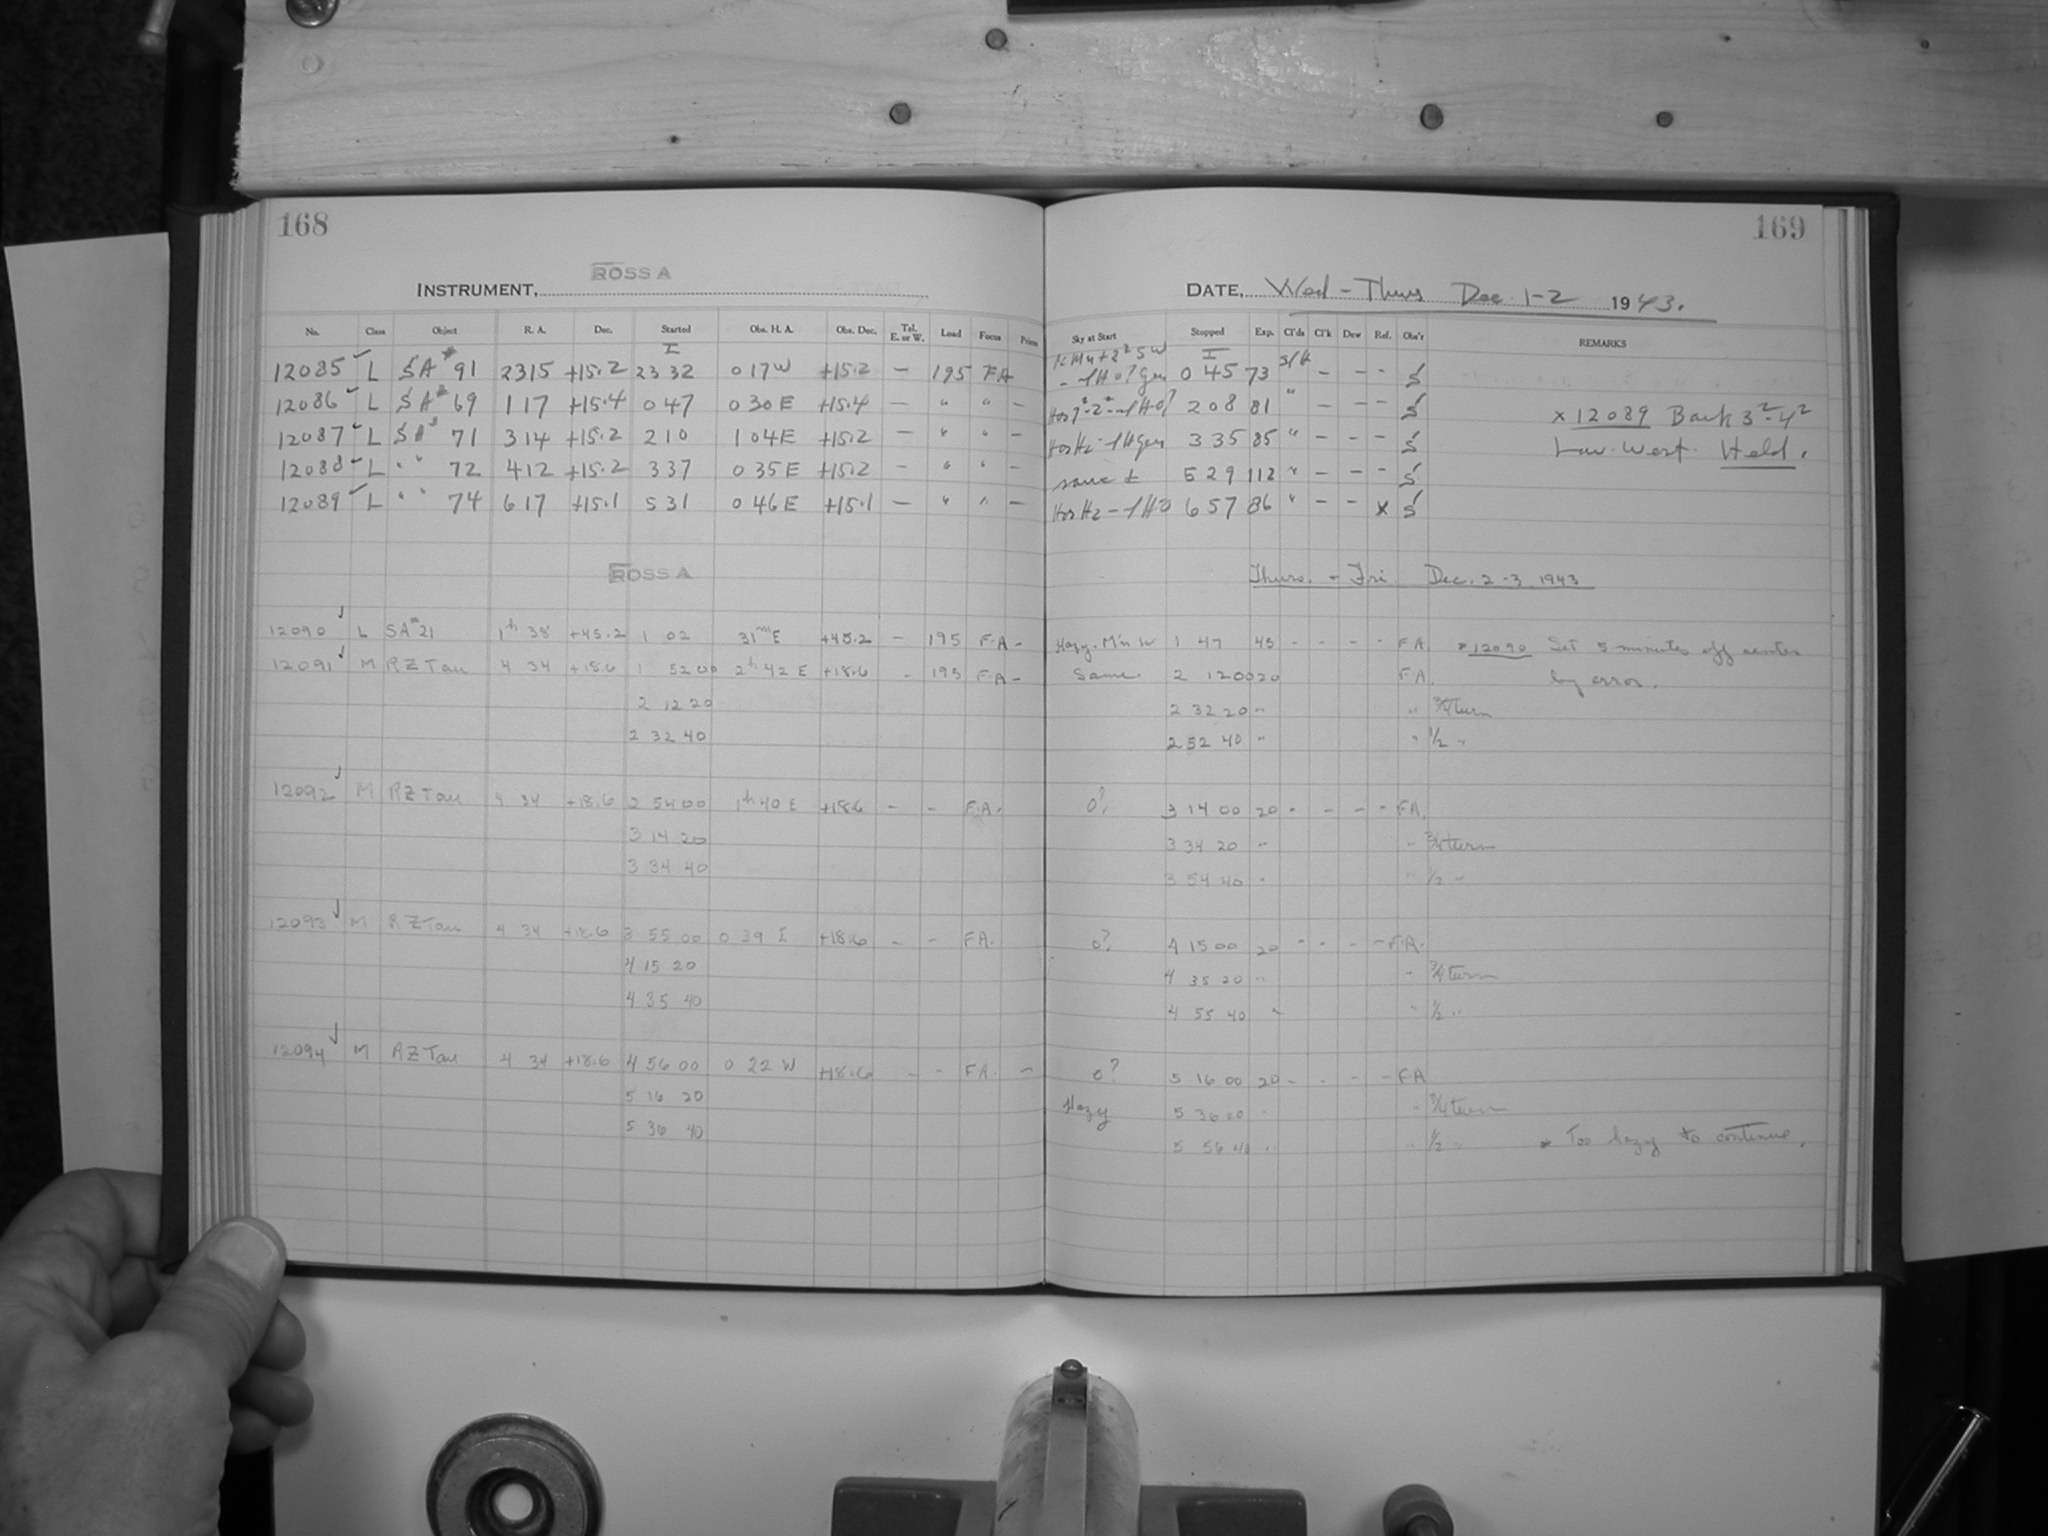 168
169
ROSS A
INSTRUMENT,
DATE, Wed - Thurs Dec. 1-2 1943.
No. Class Object R. A. Dec. Started Obs. H. A. Obs. Dec. Tel. E. or W. Load Focus Prism Sky at Start Stopped Exp. Cl'ds Cl'k Dew Ref. Obs'r REMARKS
12085 L SA# 91 23 15 +15.2 23 32 0 17 W +15.2 - 195 FA 0 45 73 - - - S
12086 L SA# 69 1 17 +15.4 0 47 0 30 E +15.4 - " " - 2 08 81 " - - - S
x 12089 Back 3²-4²
12087 L SA# 71 3 14 +15.2 2 10 1 04 E +15.2 - " " - 3 35 85 " - - - S
Low West. Held.
12088 L " " 72 4 12 +15.2 3 37 0 35 E +15.2 - " " - same ± 5 29 112 " - - - S
12089 L " " 74 6 17 +15.1 5 31 0 46 E +15.1 - " " - 6 57 86 " - - x S
ROSS A
Thurs. - Fri. Dec. 2-3 1943
12090 L SA#21 1h 38 +45.2 1 02 31m E +45.2 - 195 F.A - Hazy. M'n W 1 47 45 - - - - F A * 12090 Set 5 minutes off center
12091 M RZ Tau 4 34 +18.6 1 52 00 2h 42 E +18.6 - 195 F.A - Same. 2 12 00 20 F.A. by error.
2 12 20 2 32 20 " " 3/4 turn
2 32 40 2 52 40 " " 1/2 "
12092 M RZ Tau 4 34 +18.6 2 54 00 1h 40 E +18.6 - - F.A. 0? 3 14 00 20 - - - - FA.
3 14 20 3 34 20 " " 3/4 turn
3 34 40 3 54 40 " " 1/2 "
12093 M RZ Tau 4 34 +18.6 3 55 00 0 39 E +18.6 - - FA. 0? 4 15 00 20 - - - - F.A.
4 15 20 4 35 20 " " 3/4 turn
4 35 40 4 55 40 " " 1/2 "
12094 M RZ Tau 4 34 +18.6 4 56 00 0 22 W +18.6 - - FA. - 0? 5 16 00 20 - - - - FA
5 16 20 Hazy 5 36 20 " " 3/4 turn
5 36 40 5 56 40 " " 1/2 " * Too hazy to continue.